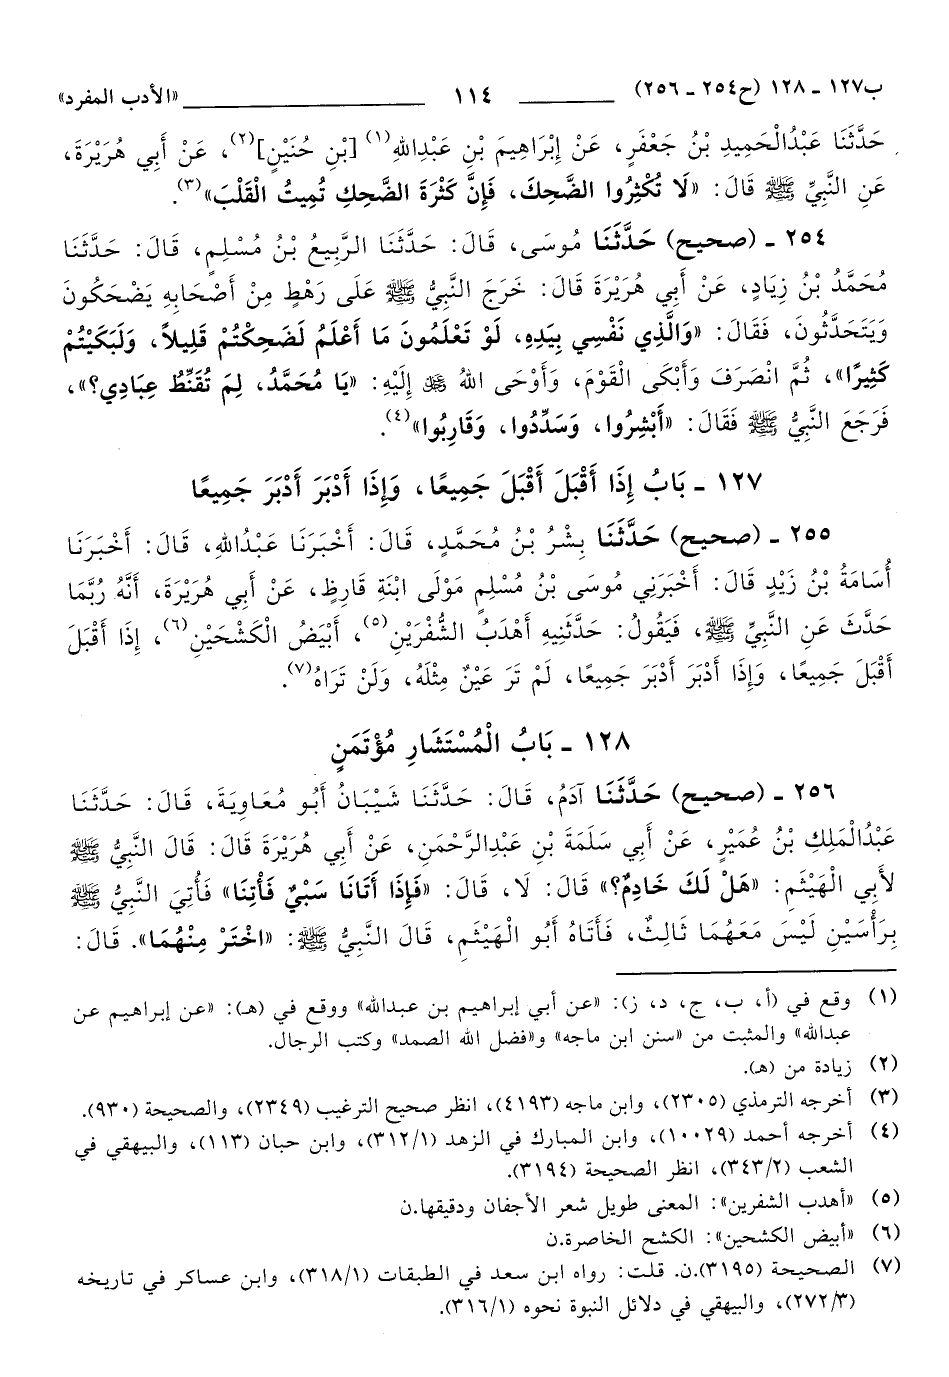 ب١٢٧ ـ ١٢٨ (ح٢٥٤ ـ ٢٥٦) ١١٤ «الأدب المفرد»
حَدَّثَنَا عَبْدُالْحَمِيدِ بْنُ جَعْفَرٍ، عَنْ إِبْرَاهِيمَ بْنِ عَبْدِاللهِ(١) [بْنِ حُنَيْنٍ](٢)، عَنْ أَبِي هُرَيْرَةَ،
عَنِ النَّبِيِّ ﷺ قَالَ: «لَا تُكْثِرُوا الضَّحِكَ، فَإِنَّ كَثْرَةَ الضَّحِكِ تُمِيتُ الْقَلْبَ»(٣).
٢٥٤ ـ (صحيح) حَدَّثَنَا مُوسَى، قَالَ: حَدَّثَنَا الرَّبِيعُ بْنُ مُسْلِمٍ، قَالَ: حَدَّثَنَا
مُحَمَّدُ بْنُ زِيَادٍ، عَنْ أَبِي هُرَيْرَةَ قَالَ: خَرَجَ النَّبِيُّ ﷺ عَلَى رَهْطٍ مِنْ أَصْحَابِهِ يَضْحَكُونَ
وَيَتَحَدَّثُونَ، فَقَالَ: «وَالَّذِي نَفْسِي بِيَدِهِ، لَوْ تَعْلَمُونَ مَا أَعْلَمُ لَضَحِكْتُمْ قَلِيلاً، وَلَبَكَيْتُمْ
كَثِيرًا»، ثُمَّ انْصَرَفَ وَأَبْكَى الْقَوْمَ، وَأَوْحَى اللهُ ﷻ إِلَيْهِ: «يَا مُحَمَّدُ، لِمَ تُقَنِّطُ عِبَادِي؟»،
فَرَجَعَ النَّبِيُّ ﷺ فَقَالَ: «أَبْشِرُوا، وَسَدِّدُوا، وَقَارِبُوا»(٤).
١٢٧ ـ بَابُ إِذَا أَقْبَلَ أَقْبَلَ جَمِيعًا، وَإِذَا أَدْبَرَ أَدْبَرَ جَمِيعًا
٢٥٥ ـ (صحيح) حَدَّثَنَا بِشْرُ بْنُ مُحَمَّدٍ، قَالَ: أَخْبَرَنَا عَبْدُاللهِ، قَالَ: أَخْبَرَنَا
أُسَامَةُ بْنُ زَيْدٍ قَالَ: أَخْبَرَنِي مُوسَى بْنُ مُسْلِمٍ مَوْلَى ابْنَةِ قَارِظٍ، عَنْ أَبِي هُرَيْرَةَ، أَنَّهُ رُبَّمَا
حَدَّثَ عَنِ النَّبِيِّ ﷺ، فَيَقُولُ: حَدَّثَنِيهِ أَهْدَبُ الشُّفْرَيْنِ(٥)، أَبْيَضُ الْكَشْحَيْنِ(٦)، إِذَا أَقْبَلَ
أَقْبَلَ جَمِيعًا، وَإِذَا أَدْبَرَ أَدْبَرَ جَمِيعًا، لَمْ تَرَ عَيْنٌ مِثْلَهُ، وَلَنْ تَرَاهُ(٧).
١٢٨ ـ بَابُ الْمُسْتَشَارِ مُؤْتَمَنٍ
٢٥٦ ـ (صحيح) حَدَّثَنَا آدَمُ، قَالَ: حَدَّثَنَا شَيْبَانُ أَبُو مُعَاوِيَةَ، قَالَ: حَدَّثَنَا
عَبْدُالْمَلِكِ بْنُ عُمَيْرٍ، عَنْ أَبِي سَلَمَةَ بْنِ عَبْدِالرَّحْمَنِ، عَنْ أَبِي هُرَيْرَةَ قَالَ: قَالَ النَّبِيُّ ﷺ
لأَبِي الْهَيْثَمِ: «هَلْ لَكَ خَادِمٌ؟» قَالَ: لَا، قَالَ: «فَإِذَا أَتَانَا سَبْيٌ فَأْتِنَا» فَأُتِيَ النَّبِيُّ ﷺ
بِرَأْسَيْنِ لَيْسَ مَعَهُمَا ثَالِثٌ، فَأَتَاهُ أَبُو الْهَيْثَمِ، قَالَ النَّبِيُّ ﷺ: «اخْتَرْ مِنْهُمَا». قَالَ:
(١) وقع في (أ، ب، ج، د، ز): «عن أبي إبراهيم بن عبدالله» ووقع في (هـ): «عن إبراهيم عن
عبدالله» والمثبت من «سنن ابن ماجه» و«فضل الله الصمد» وكتب الرجال.
(٢) زيادة من (هـ).
(٣) أخرجه الترمذي (٢٣٠٥)، وابن ماجه (٤١٩٣)، انظر صحيح الترغيب (٢٣٤٩)، والصحيحة (٩٣٠).
(٤) أخرجه أحمد (١٠٠٢٩)، وابن المبارك في الزهد (٣١٢/١)، وابن حبان (١١٣)، والبيهقي في
الشعب (٣٤٣/٢)، انظر الصحيحة (٣١٩٤).
(٥) «أهدب الشفرين»: المعنى طويل شعر الأجفان ودقيقها.ن
(٦) «أبيض الكشحين»: الكشح الخاصرة.ن
(٧) الصحيحة (٣١٩٥).ن. قلت: رواه ابن سعد في الطبقات (٣١٨/١)، وابن عساكر في تاريخه
(٢٧٢/٣)، والبيهقي في دلائل النبوة نحوه (٣١٦/١).